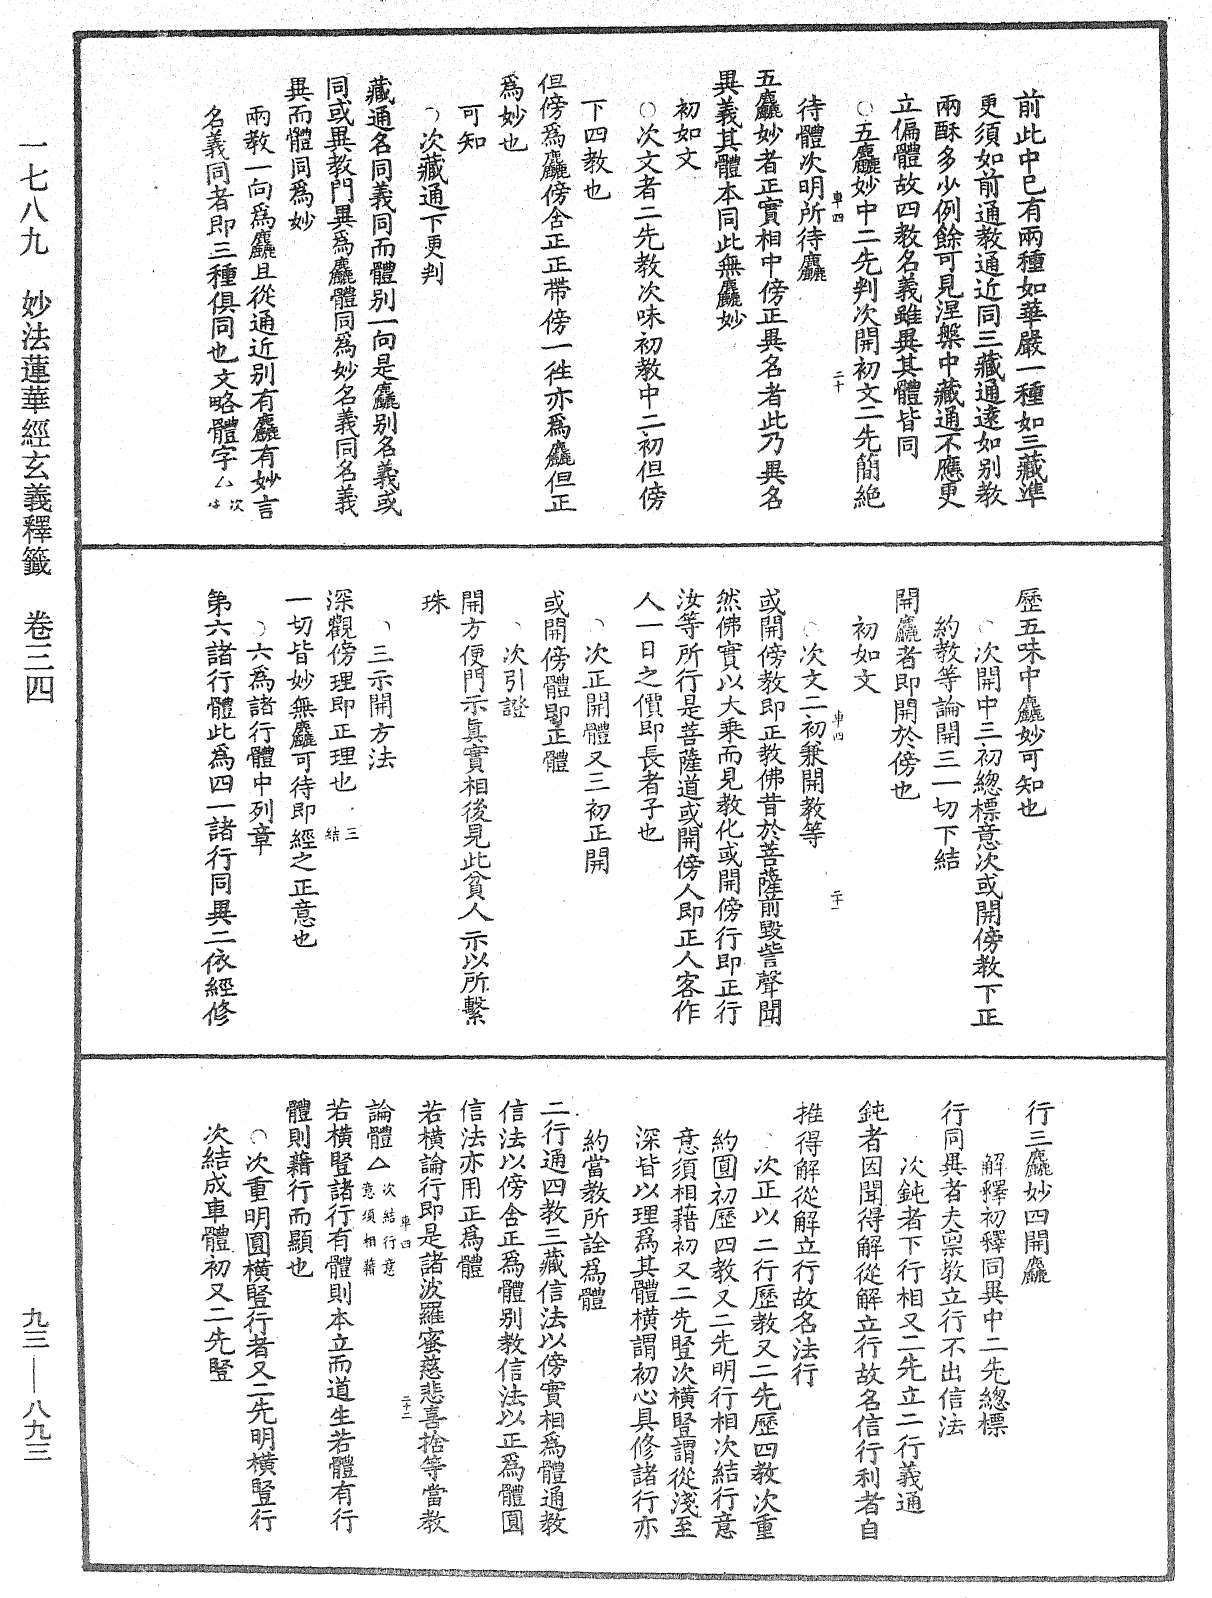 前此中已有兩種如華嚴一種如三藏準
更須如前通教通近同三藏通遠如別教
兩酥多少例餘可見涅槃中藏通不應更
立偏體故四教名義雖異其體皆同
○五麤妙中二先判次開初文二先簡絕
車四
二十
待體次明所待麤
五麤妙者正實相中傍正異名者此乃異名
異義其體本同此無麤妙
初如文
○次文者二先教次味初教中二初但傍
下四教也
但傍為麤傍含正正帶傍一往亦為麤但正
為妙也
可知
○次藏通下更判
藏通名同義同而體別一向是麤別名義或
同或異教門異為麤體同為妙名義同名義
異而體同為妙
兩教一向為麤且從通近別有麤有妙言
名義同者即三種俱同也文略體字△次味
歷五味中麤妙可知也
○次開中三初總標意次或開傍教下正
約教等論開三一切下結
開麤者即開於傍也
初如文
○次文二初兼開教等
車四
二十一
或開傍教即正教佛昔於菩薩前毀呰聲聞
然佛實以大乘而見教化或開傍行即正行
汝等所行是菩薩道或開傍人即正人客作
人一日之價即長者子也
○次正開體又三初正開
或開傍體即正體
○次引證
開方便門示真實相後見此貧人示以所繫
珠
○三示開方法
深觀傍理即正理也○三結
一切皆妙無麤可待即經之正意也
○六為諸行體中列章
第六諸行體此為四一諸行同異二依經修
行三麤妙四開麤
解釋初釋同異中二先總標
行同異者夫稟教立行不出信法
次鈍者下行相又二先立二行義通
鈍者因聞得解從解立行故名信行利者自
推得解從解立行故名法行
○次正以二行歷教又二先歷四教次重
約圓初歷四教又二先明行相次結行意
意須相藉初又二先豎次橫豎謂從淺至
深皆以理為其體橫謂初心具修諸行亦
約當教所詮為體
二行通四教三藏信法以傍實相為體通教
信法以傍含正為體別教信法以正為體圓
信法亦用正為體
若橫論行即是諸波羅蜜慈悲喜捨等當教
車四
二十二
論體△次結行意意須相藉
若橫豎諸行有體則本立而道生若體有行
體則藉行而顯也
○次重明圓橫豎行者又二先明橫豎行
次結成車體初又二先豎
一七八九 妙法蓮華經玄義釋籤 卷三四
九三——八九三